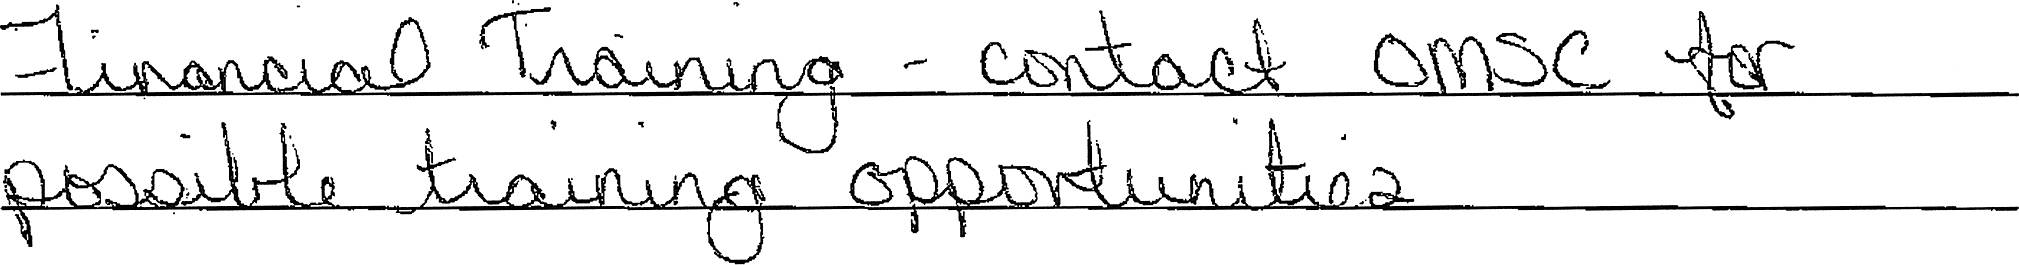 Financial Training - contact OMSC for
possible training opportunities